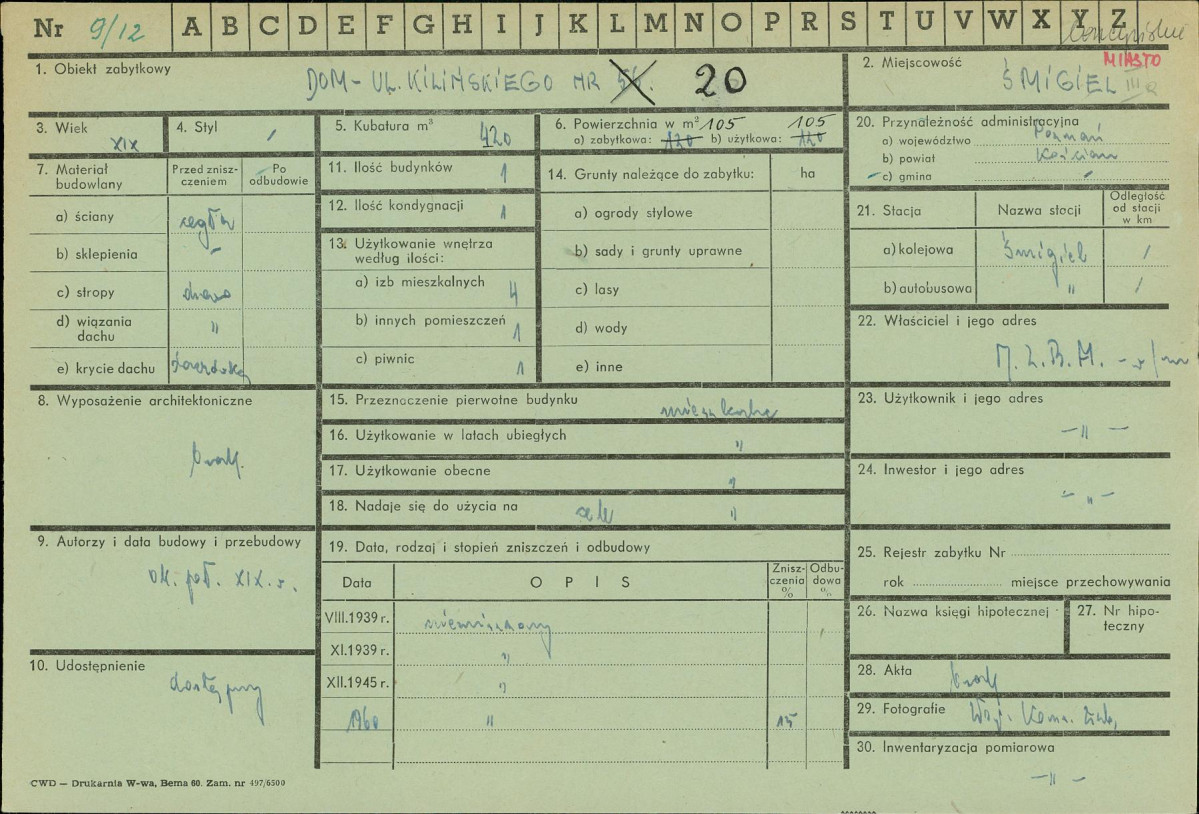 Nr 9/12 A B C D E F G H I J K L M N O P R S T U V W X Y Z
1. Obiekt zabytkowy
DOM - UL. KILIŃSKIEGO NR 20
2. Miejscowość
MIASTO
ŚMIGIEL
3. Wiek
XIX
4. Styl
/
5. Kubatura m³
420
6. Powierzchnia w m² 105 105
a) zabytkowa: 120 b) użytkowa: 120
20. Przynależność administracyjna
a) województwo Poznań
b) powiat Kościan
c) gmina -
7. Materiał budowlany
Przed zniszczeniem
Po odbudowie
a) ściany cegła
b) sklepienia -
c) stropy drewno
d) wiązania dachu "
e) krycie dachu dachówka
11. Ilość budynków 1
12. Ilość kondygnacji 1
13. Użytkowanie wnętrza
według ilości:
a) izb mieszkalnych 4
b) innych pomieszczeń 1
c) piwnic 1
14. Grunty należące do zabytku: ha
a) ogrody stylowe
b) sady i grunty uprawne
c) lasy
d) wody
e) inne
21. Stacja
Nazwa stacji
Odległość od stacji w km
a) kolejowa Śmigiel /
b) autobusowa " /
22. Właściciel i jego adres
M.Z.B.M. -
8. Wyposażenie architektoniczne
brak.
15. Przeznaczenie pierwotne budynku mieszkalne
16. Użytkowanie w latach ubiegłych "
17. Użytkowanie obecne "
18. Nadaje się do użycia na cele "
23. Użytkownik i jego adres
- " -
24. Inwestor i jego adres
- " -
9. Autorzy i data budowy i przebudowy
ok. poł. XIX w.
19. Data, rodzaj i stopień zniszczeń i odbudowy
Data
OPIS
Zniszczenia %
Odbudowa %
VIII.1939 r.
XI.1939 r. "
XII.1945 r. "
1960 " 15
25. Rejestr zabytku Nr
rok miejsce przechowywania
26. Nazwa księgi hipotecznej
27. Nr hipoteczny
10. Udostępnienie
dostępny
28. Akta brak
29. Fotografie Woj. Kons. Zab.
30. Inwentaryzacja pomiarowa
- " -
CWD — Drukarnia W-wa, Bema 60. Zam. nr 497/6500